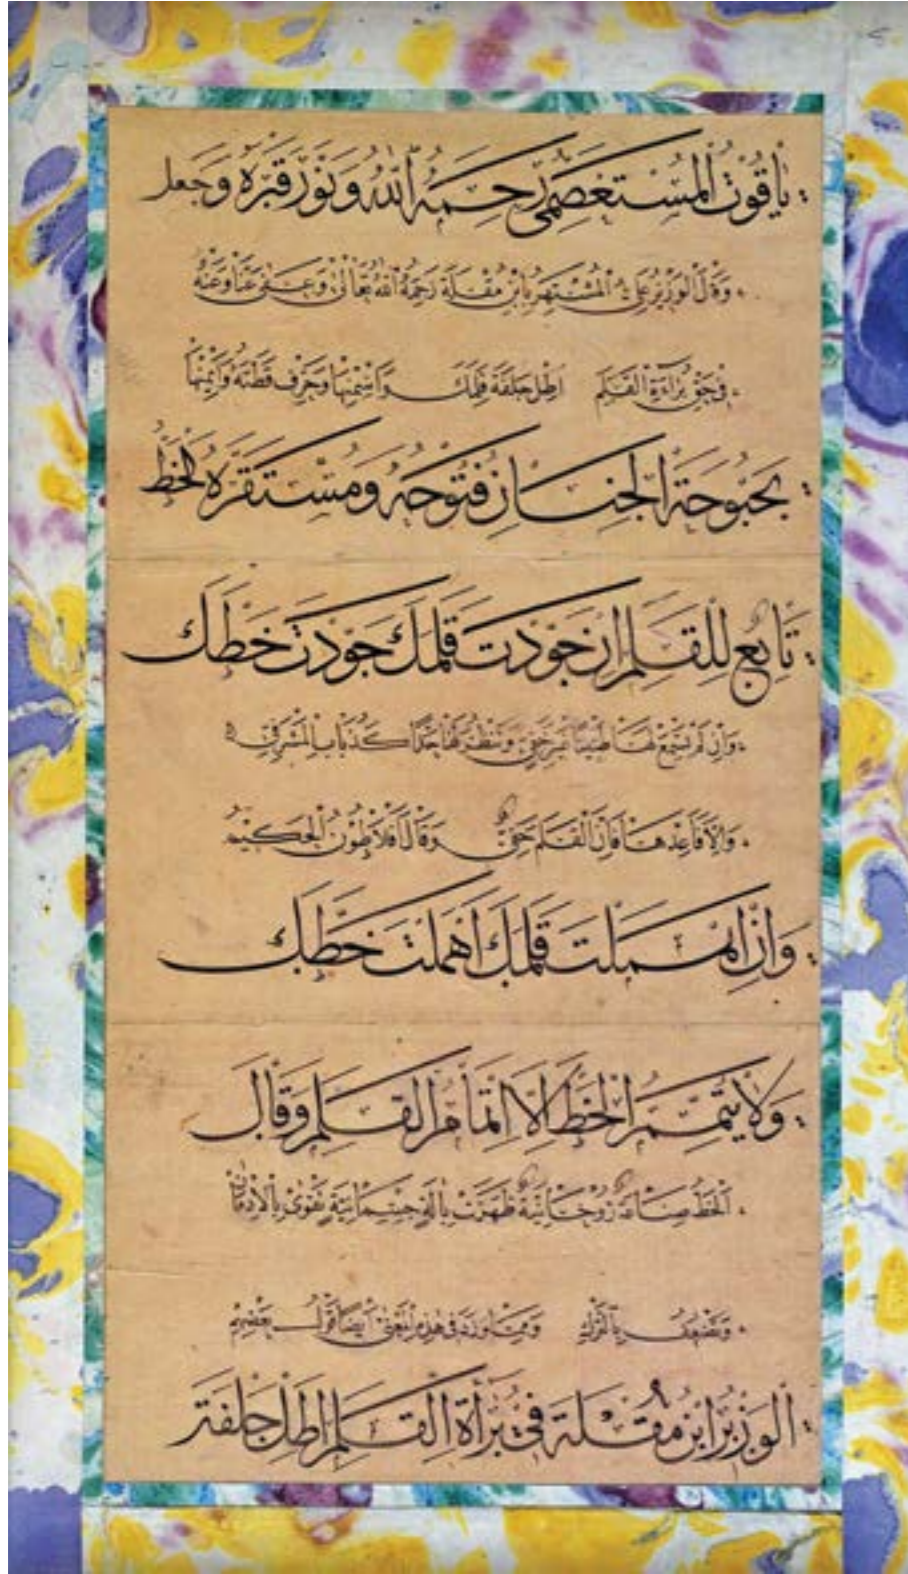 ياقُوتُ الْمُسْتَعْصِمِي رَحِمَهُ اللّٰهُ وَنَوَّرَ قَبْرَهُ وَجَعَلَ
وَقَالَ الْوَزِيرُ عَلِيُّ الْمُشْتَهِرُ بِابْنِ مُقْلَةَ رَحِمَهُ اللّٰهُ تَعَالٰى وَعَفٰى عَنَّا وَعَنْهُ
فِي حَقِّ بَرَاءَةِ الْقَلَمِ اَطِلْ جِلْفَةَ قَلَمِكَ وَاسْمِنْهَا وَحَرِّفْ قَطَّتَهُ وَاَيْمِنْهَا
بُحْبُوحَةَ الْجِنَانِ فُتُوحَهُ وَمُسْتَقَرَّهُ الْخَطُّ
تَابِعٌ لِلْقَلَمِ اِنْ جَوَّدْتَ قَلَمَكَ جَوَّدْتَ خَطَّكَ
وَاِنْ لَمْ تَسْمَعْ لَهَا طَنِينًا غَيْرَ خَفِيٍّ وَتَنْظُرْ لَهَا حَدًّا كَذُبَابِ الْمَشْرَفِيِّ
وَاِلَّا فَاَعِدْهَا فَاِنَّ الْقَلَمَ حَفِيٌّ وَقَالَ اَفْلَاطُونُ الْحَكِيْمُ
وَاِنْ اَهْمَلْتَ قَلَمَكَ اَهْمَلْتَ خَطَّكَ
وَلَا يَتِمُّ مَرَامُ الْخَطِّ اِلَّا اِتْمَامُ الْقَلَمِ وَقَالَ
اَلْخَطُّ صِنَاعَةٌ رُوحَانِيَّةٌ ظَهَرَتْ بِاٰلَةٍ جِسْمَانِيَّةٍ تَقْوٰى بِالْاِدْمَانِ
وَتَضْعُفُ بِالتَّرْكِ وَمِمَّا وَرَدَ فِي هٰذِهِ الْمَعْنٰى اَيْضًا قَوْلُ بَعْضِهِمْ
اَلْوَزِيرُ ابْنُ مُقْلَةَ فِي بَرْأَةِ الْقَلَمِ اَطِلْ جِلْفَةَ